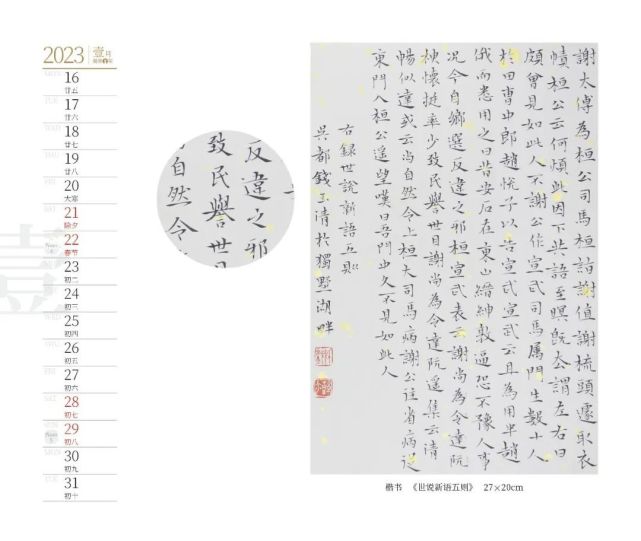 2023 壹月
16
廿五
17
廿六
18
廿七
19
廿八
20
大寒
21
除夕
22
春节
23
初二
24
初三
25
初四
26
初五
27
初六
28
初七
29
初八
30
初九
31
初十
壹
反違之邪
致民譽世目
自然令
謝太傅為桓公司馬桓詣謝值謝梳頭遽取衣
幘桓公云何煩此因下共語至暝既去謂左右曰
頗曾見如此人不謝公作宣武司馬属門生數十人
於田曹中郎趙悅子以告宣武宣武云且為用半趙
俄而悉用之曰昔安石在東山縉紳敦逼恐不豫人事
況今自鄉選反違之邪桓宣武表云謝尚為令達阮
神懷挺率少致民譽世目謝尚為令達阮遥集云清
暢似達或云尚自然令上桓大司馬病謝公往省病從
東門入桓公遥望嘆曰吾門中久不見如此人
右録世說新語五則
吳都錢玉清於獨墅湖畔
楷书 《世说新语五则》 27×20cm